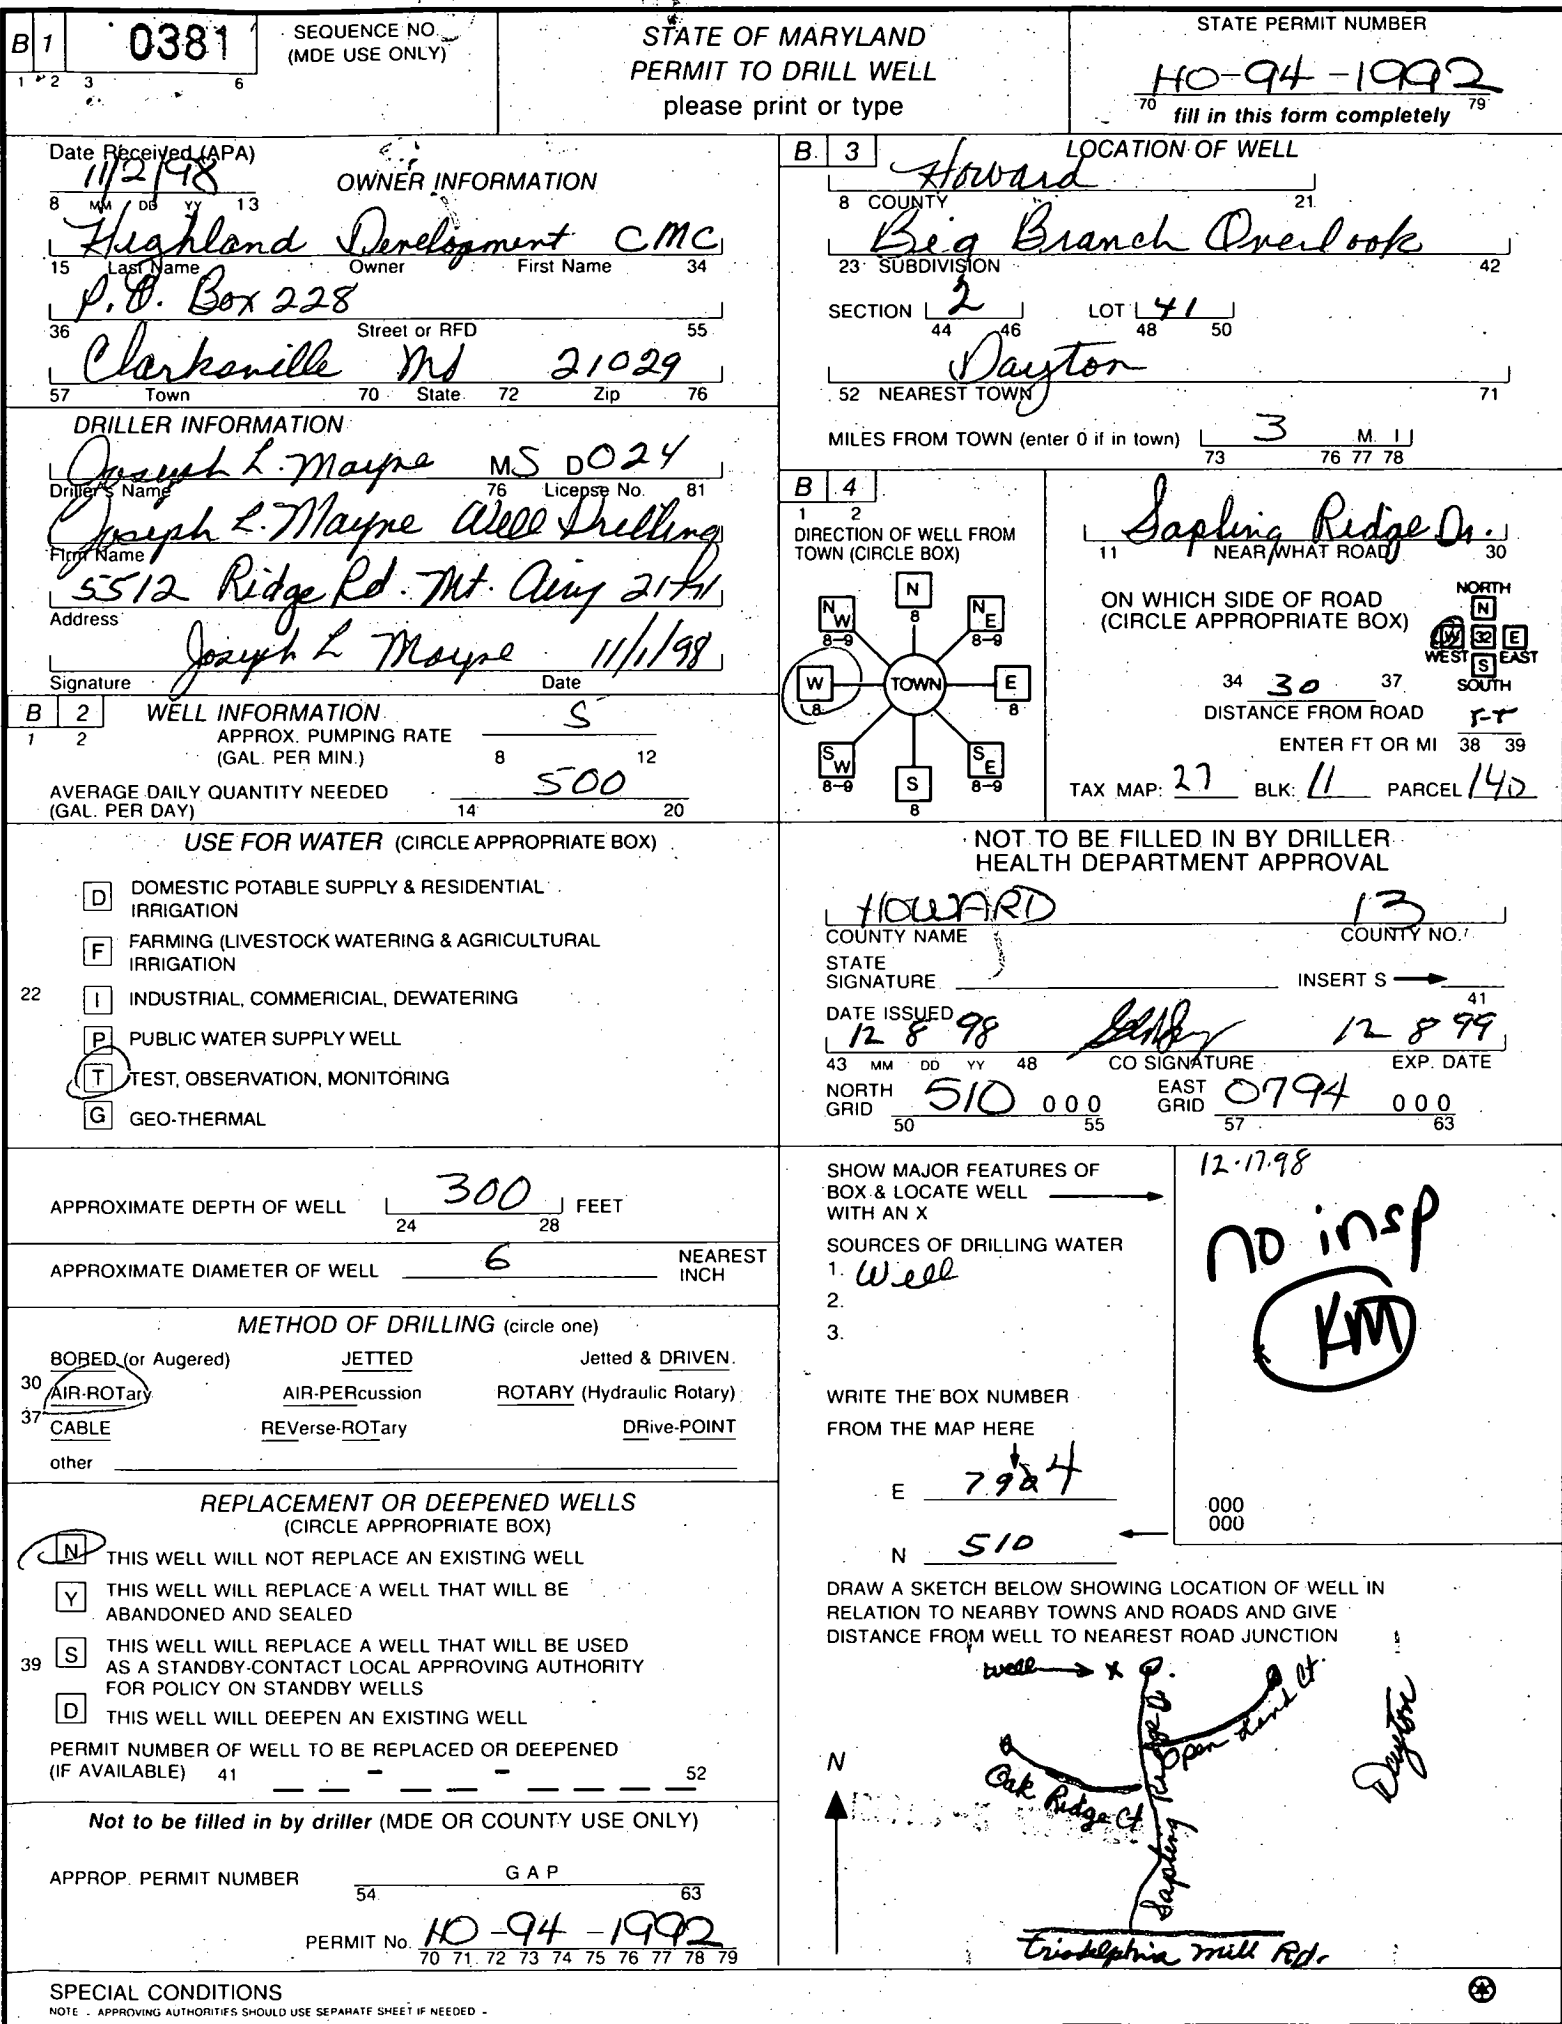 B 1 0381 SEQUENCE NO. (MDE USE ONLY)
1 2 3 6
STATE OF MARYLAND
PERMIT TO DRILL WELL
please print or type
STATE PERMIT NUMBER
HO-94-1992
70 79
fill in this form completely
Date Received (APA)
11/2/98
8 MM DD YY 13
OWNER INFORMATION
Highland Development CMC
15 Last Name Owner First Name 34
P.O. Box 228
36 Street or RFD 55
Clarksville Md 21029
57 Town 70 State 72 Zip 76
DRILLER INFORMATION
Joseph L. Mayne MS D024
Driller's Name 76 License No. 81
Joseph L. Mayne Well Drilling
Firm Name
5512 Ridge Rd. Mt. Airy
Address
Joseph L Mayne 11/1/98
Signature Date
B 2 WELL INFORMATION
1 2
APPROX. PUMPING RATE 5
(GAL. PER MIN.) 8 12
AVERAGE DAILY QUANTITY NEEDED 500
(GAL. PER DAY) 14 20
USE FOR WATER (CIRCLE APPROPRIATE BOX)
D DOMESTIC POTABLE SUPPLY & RESIDENTIAL
IRRIGATION
F FARMING (LIVESTOCK WATERING & AGRICULTURAL
IRRIGATION
22 I INDUSTRIAL, COMMERICIAL, DEWATERING
P PUBLIC WATER SUPPLY WELL
T TEST, OBSERVATION, MONITORING
G GEO-THERMAL
APPROXIMATE DEPTH OF WELL 300 FEET
24 28
APPROXIMATE DIAMETER OF WELL 6 NEAREST
INCH
METHOD OF DRILLING (circle one)
BORED (or Augered) JETTED Jetted & DRIVEN.
30 AIR-ROTary AIR-PERcussion ROTARY (Hydraulic Rotary)
37 CABLE REVerse-ROTary DRive-POINT
other
REPLACEMENT OR DEEPENED WELLS
(CIRCLE APPROPRIATE BOX)
N THIS WELL WILL NOT REPLACE AN EXISTING WELL
Y THIS WELL WILL REPLACE A WELL THAT WILL BE
ABANDONED AND SEALED
39 S THIS WELL WILL REPLACE A WELL THAT WILL BE USED
AS A STANDBY-CONTACT LOCAL APPROVING AUTHORITY
FOR POLICY ON STANDBY WELLS
D THIS WELL WILL DEEPEN AN EXISTING WELL
PERMIT NUMBER OF WELL TO BE REPLACED OR DEEPENED
(IF AVAILABLE) 41 - - 52
Not to be filled in by driller (MDE OR COUNTY USE ONLY)
APPROP. PERMIT NUMBER G A P
54 63
PERMIT No. HO-94-1992
70 71 72 73 74 75 76 77 78 79
SPECIAL CONDITIONS
NOTE - APPROVING AUTHORITIES SHOULD USE SEPARATE SHEET IF NEEDED -
B 3 LOCATION OF WELL
Howard
8 COUNTY 21
Big Branch Overlook
23 SUBDIVISION 42
SECTION 2 LOT 41
44 46 48 50
Dayton
52 NEAREST TOWN 71
MILES FROM TOWN (enter 0 if in town) 3 M I
73 76 77 78
B 4
1 2
DIRECTION OF WELL FROM
TOWN (CIRCLE BOX)
N
8
NW NE
8-9 8-9
W TOWN E
8 8
SW SE
8-9 8-9
S
8
Sapling Ridge Dr.
11 NEAR WHAT ROAD 30
ON WHICH SIDE OF ROAD
(CIRCLE APPROPRIATE BOX)
NORTH
N
W 32 E
WEST S EAST
SOUTH
34 30 37
DISTANCE FROM ROAD FT
ENTER FT OR MI 38 39
TAX MAP: 27 BLK: 11 PARCEL 140
NOT TO BE FILLED IN BY DRILLER
HEALTH DEPARTMENT APPROVAL
HOWARD 13
COUNTY NAME COUNTY NO.
STATE
SIGNATURE INSERT S
41
DATE ISSUED
12 8 98 12 8 99
43 MM DD YY 48 CO SIGNATURE EXP. DATE
NORTH GRID 510 000 EAST GRID 0794 000
50 55 57 63
SHOW MAJOR FEATURES OF
BOX & LOCATE WELL
WITH AN X
SOURCES OF DRILLING WATER
1. Well
2.
3.
12-17-98
no insp
KM
WRITE THE BOX NUMBER
FROM THE MAP HERE
E 794
N 510
000
000
DRAW A SKETCH BELOW SHOWING LOCATION OF WELL IN
RELATION TO NEARBY TOWNS AND ROADS AND GIVE
DISTANCE FROM WELL TO NEAREST ROAD JUNCTION
well X
Open Land Ct.
Dayton
N
Oak Ridge Ct
Sapling Ridge Dr
Triadelphia Mill Rd.